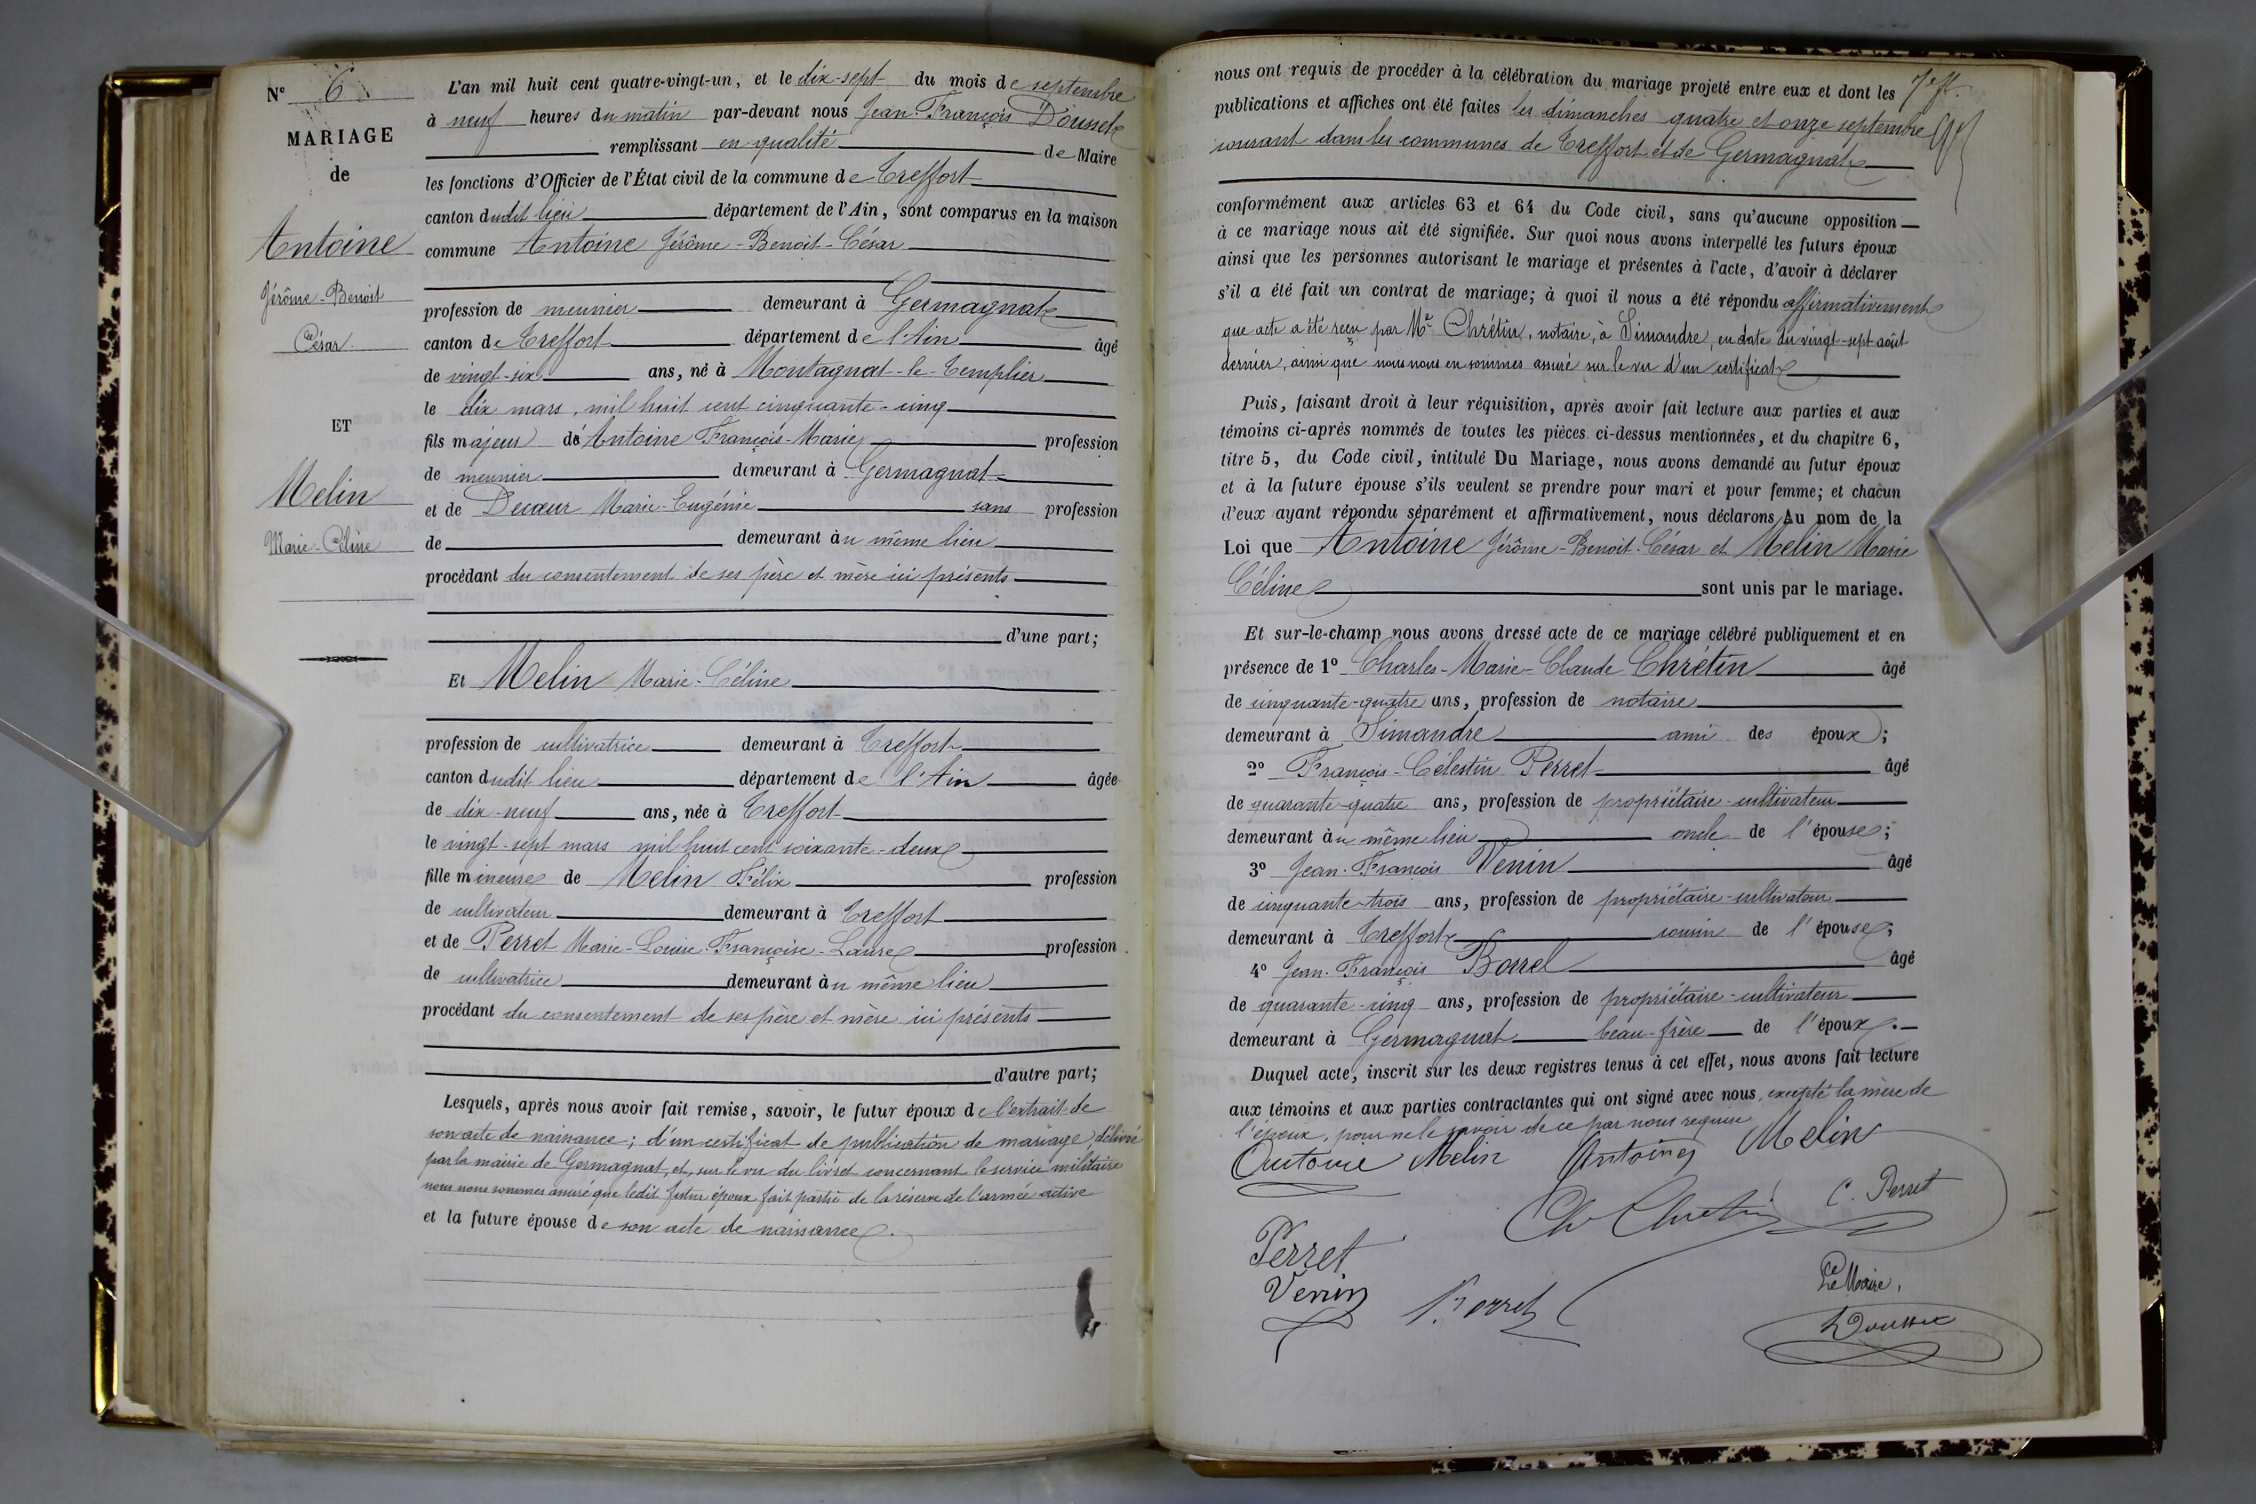 N° 6
MARIAGE
de
Antoine
Jérôme-Benoit
César
ET
Melin
Marie-Céline
L'an mil huit cent quatre-vingt-un, et le dix-sept du mois de septembre
à neuf heures du matin par-devant nous Jean-François Dousset
remplissant en qualité de Maire
les fonctions d'Officier de l'État civil de la commune de Treffort
canton dudit lieu département de l'Ain, sont comparus en la maison
commune Antoine Jérôme-Benoit-César
profession de meunier demeurant à Germagnat
canton de Treffort département de l'Ain âgé
de vingt-six ans, né à Montagnat-le-Templier
le dix mars, mil huit cent cinquante-cinq
fils majeur de Antoine François-Marie profession
de meunier demeurant à Germagnat
et de Decœur Marie-Eugénie sans profession
de demeurant au même lieu
procédant du consentement de ses père et mère ici présents
d'une part;
Et Melin Marie-Céline
profession de cultivatrice demeurant à Treffort
canton dudit lieu département de l'Ain âgée
de dix-neuf ans, née à Treffort
le vingt-sept mars mil huit cent soixante-deux
fille mineure de Melin Félix profession
de cultivateur demeurant à Treffort
et de Perret Marie-Louise-Françoise-Laure profession
de cultivatrice demeurant au même lieu
procédant du consentement de ses père et mère ici présents
d'autre part;
Lesquels, après nous avoir fait remise, savoir, le futur époux de l'extrait de
son acte de naissance; d'un certificat de publication de mariage, délivré
par la mairie de Germagnat, et, sur le vu du livret concernant le service militaire
nous nous sommes assuré que ledit futur époux fait partie de la réserve de l'armée active
et la future épouse de son acte de naissance.
nous ont requis de procéder à la célébration du mariage projeté entre eux et dont les
publications et affiches ont été faites les dimanches quatre et onze septembre
courant dans les communes de Treffort et de Germagnat
conformément aux articles 63 et 64 du Code civil, sans qu'aucune opposition
à ce mariage nous ait été signifiée. Sur quoi nous avons interpellé les futurs époux
ainsi que les personnes autorisant le mariage et présentes à l'acte, d'avoir à déclarer
s'il a été fait un contrat de mariage; à quoi il nous a été répondu affirmativement
que acte a été reçu par Me Chrétin, notaire, à Simandre, en date du vingt-sept août
dernier, ainsi que nous nous en sommes assuré sur le vu d'un certificat
Puis, faisant droit à leur réquisition, après avoir fait lecture aux parties et aux
témoins ci-après nommés de toutes les pièces ci-dessus mentionnées, et du chapitre 6,
titre 5, du Code civil, intitulé Du Mariage, nous avons demandé au futur époux
et à la future épouse s'ils veulent se prendre pour mari et pour femme; et chacun
d'eux ayant répondu séparément et affirmativement, nous déclarons Au nom de la
Loi que Antoine Jérôme-Benoit-César et Melin Marie
Céline sont unis par le mariage.
Et sur-le-champ nous avons dressé acte de ce mariage célébré publiquement et en
présence de 1° Charles-Marie-Claude Chrétin âgé
de cinquante-quatre ans, profession de notaire
demeurant à Simandre ami des époux;
2° François-Célestin Perret âgé
de quarante-quatre ans, profession de propriétaire-cultivateur
demeurant au même lieu oncle de l'épouse;
3° Jean-François Venin âgé
de cinquante-trois ans, profession de propriétaire-cultivateur
demeurant à Treffort cousin de l'épouse;
4° Jean-François Borrel âgé
de quarante-cinq ans, profession de propriétaire-cultivateur
demeurant à Germagnat beau-frère de l'époux.
Duquel acte, inscrit sur les deux registres tenus à cet effet, nous avons fait lecture
aux témoins et aux parties contractantes qui ont signé avec nous, excepté la mère de
l'époux, pour ne le savoir de ce par nous requise
Antoine Melin Antoine Melin
Ch Chretin C. Perret
Perret
Venin
Le Maire,
Dousset